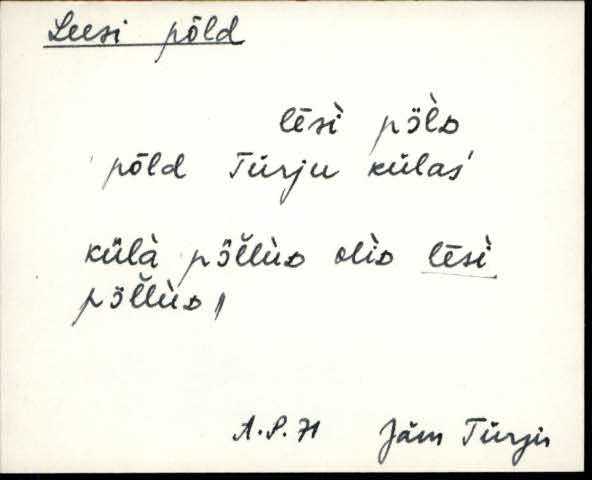 Leesi põld
lēsì pö̀lᴅ
'põld Türju külas'
külà pöl̆lùᴅ olìᴅ lēsì
pöl̆lùᴅ,
A.S. 71 Jäm Türju